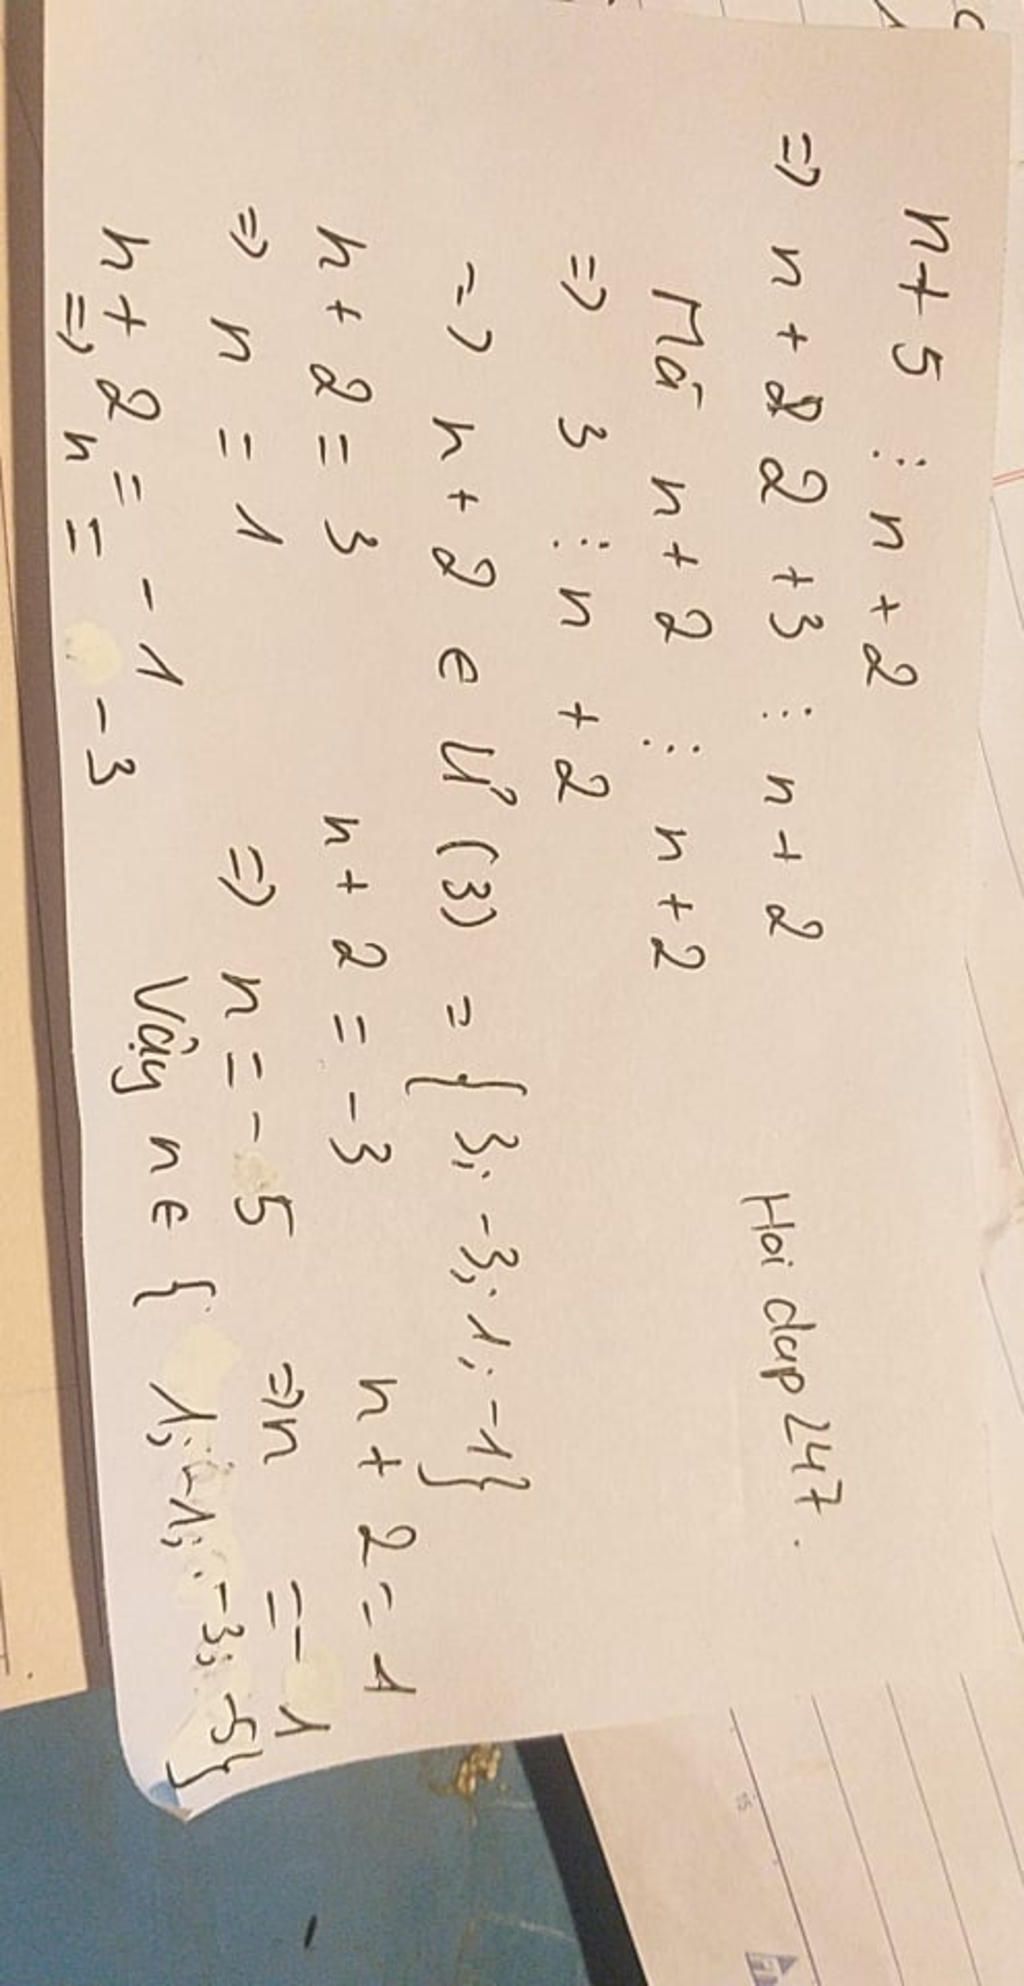 n + 5 ⋮ n + 2
=> n + 2 + 3 ⋮ n + 2
Hoi dap 247.
Mà n + 2 ⋮ n + 2
=> 3 ⋮ n + 2
=> n + 2 ∈ Ư (3) = { 3; -3; 1; -1}
n + 2 = 3 n + 2 = -3 n + 2 = 1
=> n = 1 => n = -5 => n = -1
n + 2 = -1 Vậy n ∈ { 1; -1; -3; -5}
=> n = -3